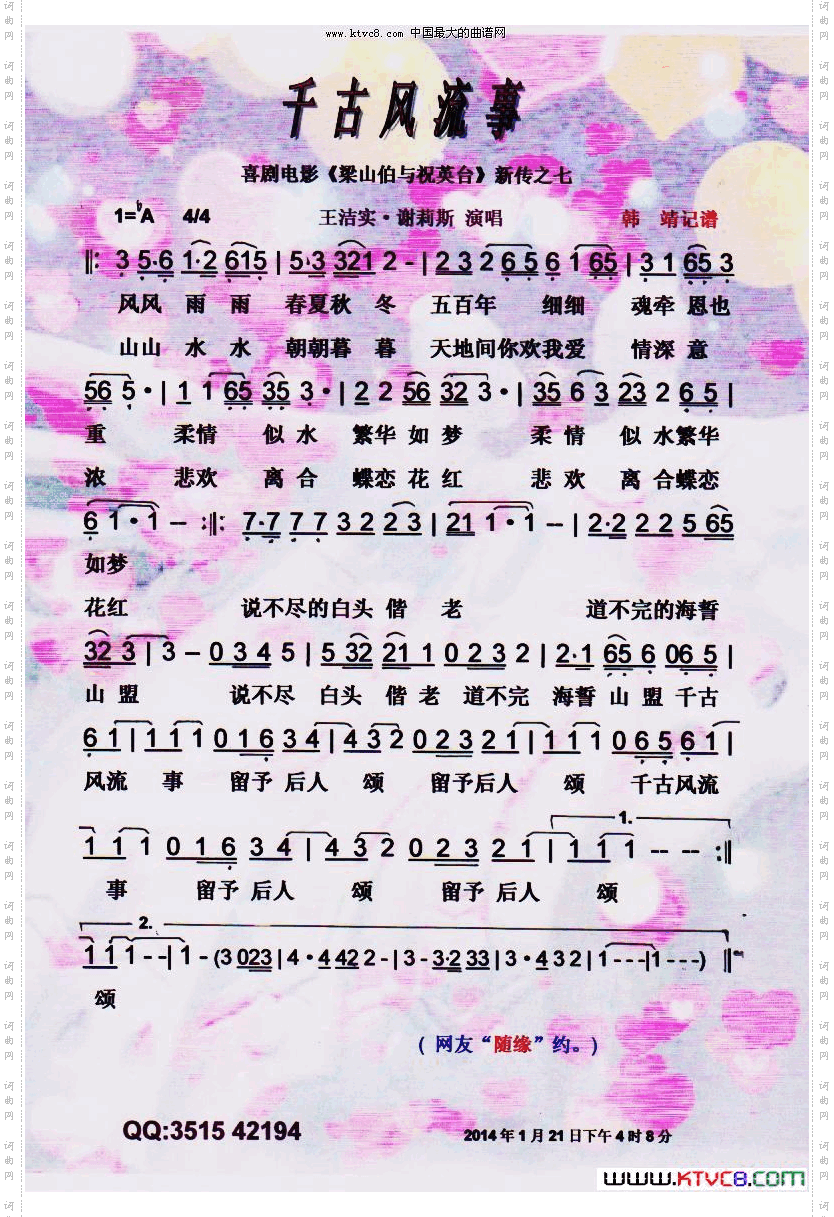 www.ktvc8.com 中国最大的曲谱网
千古风流事
喜剧电影《梁山伯与祝英台》新传之七
1=♭A 4/4 王洁实·谢莉斯 演唱 韩 靖记谱
‖: 3 5·6 1·2 615 | 5·3 321 2 - | 2 3 2 6 5 6 1 65 | 3 1 65 3
风风 雨 雨 春夏秋 冬 五百年 细细 魂牵 恩也
山山 水 水 朝朝暮 暮 天地间你欢我爱 情深 意
56 5 · | 1 1 65 35 3 · | 2 2 56 32 3 · | 35 6 3 23 2 6 5 |
重 柔情 似 水 繁华 如 梦 柔 情 似 水繁华
浓 悲欢 离 合 蝶恋 花 红 悲 欢 离 合蝶恋
6 1 · 1 -- :‖: 7·7 7 7 3 2 2 3 | 21 1 · 1 -- | 2·2 2 2 5 65
如梦
花红 说不尽的白头 偕 老 道不完的海誓
32 3 | 3 - 0 3 4 5 | 5 32 21 1 0 2 3 2 | 2·1 65 6 06 5 |
山 盟 说不尽 白头 偕 老 道不完 海誓 山 盟 千古
6 1 | 1 1 1 0 1 6 3 4 | 4 3 2 0 2 3 2 1 | 1 1 1 0 6 5 6 1 |
风流 事 留予 后人 颂 留予后人 颂 千古风流
1.
1 1 1 0 1 6 3 4 | 4 3 2 0 2 3 2 1 | 1 1 1 -- -- :‖
事 留予 后人 颂 留予 后人 颂
2.
1 1 1 - - | 1 - (3 023 | 4 · 4 42 2 - | 3 - 3·2 33 | 3 · 4 3 2 | 1 - - - | 1 - - -) ‖
颂
( 网友“随缘”约。)
QQ:3515 42194 2014年1月21日下午4时8分
www.KTVC8.com